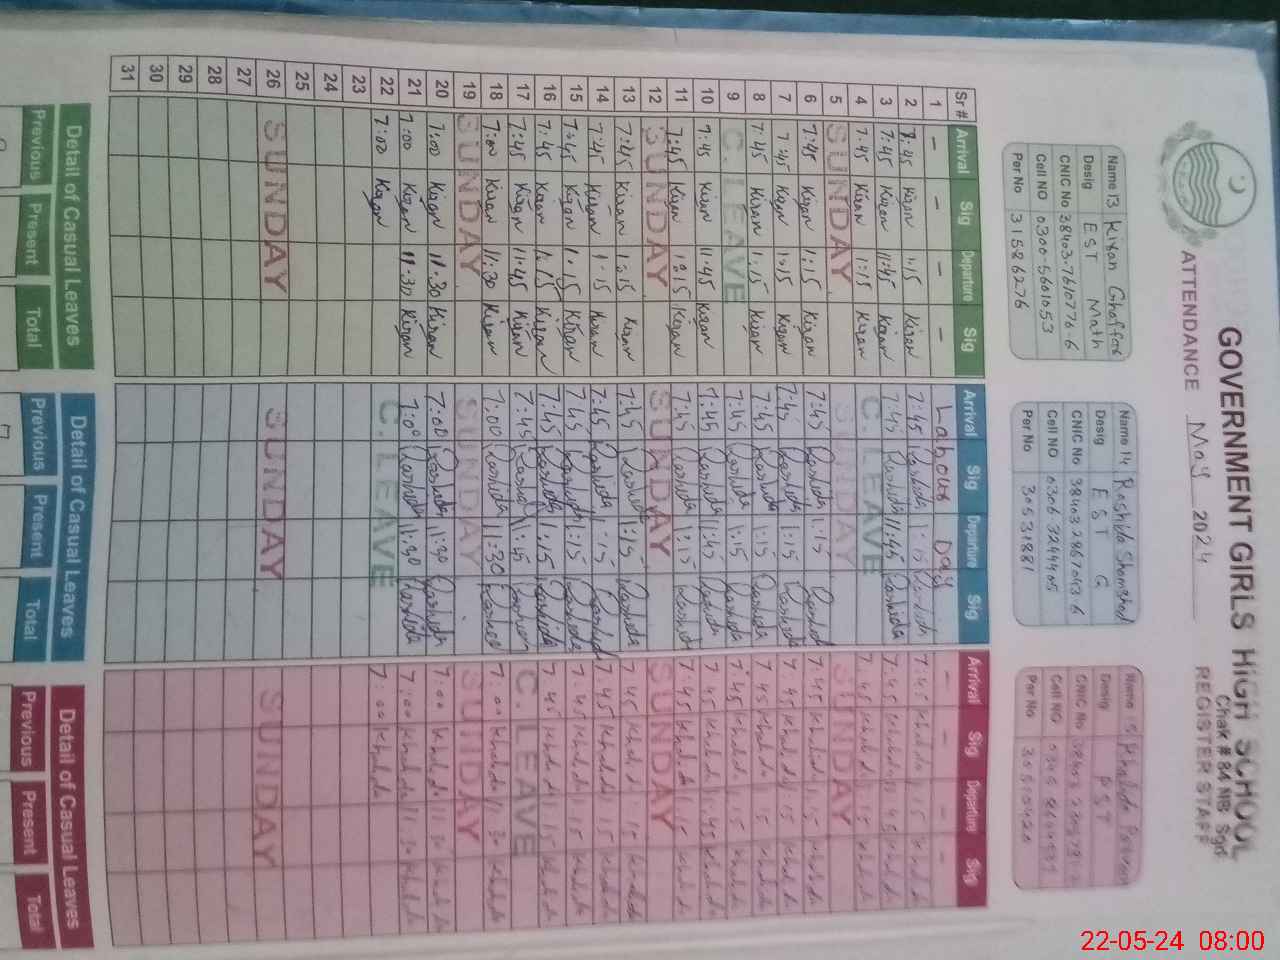 GOVERNMENT GIRLS HIGH SCHOOL
Chak # 84 NB Sgd
ATTENDANCE May 2024 REGISTER STAFF
Name 13 Kiran Ghaffar
Desig EST Math
CNIC No 38403-7610776-6
Cell NO 0300-5601053
Per No 31586276
Name 14 Rashida Shamshad
Desig EST G
CNIC No
Cell NO 0306 3244405
Per No 30531881
Name Khalida Parveen
Desig PST
CNIC No
Cell NO
Per No
Sr# Arrival Sig Departure Sig Arrival Sig Departure Sig Arrival Sig Departure Sig
1 – – – – Labour Day – – – –
2 8:45 Kiran 1:15 Kiran 7:45 Rashida 1:15 Rashida 7:45 Khalida 1:15 Khalida
3 7:45 Kiran 11:45 Kiran 7:45 Rashida 11:45 Rashida 7:45 Khalida 11:45 Khalida
4 7:45 Kiran 1:15 Kiran C. LEAVE 7:45 Khalida 1:15 Khalida
5 SUNDAY SUNDAY SUNDAY
6 7:45 Kiran 1:15 Kiran 7:45 Rashida 1:15 Rashida 7:45 Khalida 1:15 Khalida
7 7:45 Kiran 1:15 Kiran 7:45 Rashida 1:15 Rashida 7:45 Khalida 1:15 Khalida
8 7:45 Kiran 1:15 Kiran 7:45 Rashida 1:15 Rashida 7:45 Khalida 1:15 Khalida
9 C. LEAVE 7:45 Rashida 1:15 Rashida 7:45 Khalida 1:15 Khalida
10 7:45 Kiran 11:45 Kiran 7:45 Rashida 11:45 Rashida 7:45 Khalida 11:45 Khalida
11 7:45 Kiran 1:15 Kiran 7:45 Rashida 1:15 Rashida 7:45 Khalida 1:15 Khalida
12 SUNDAY SUNDAY SUNDAY
13 7:45 Kiran 1:15 Kiran 7:45 Rashida 1:15 Rashida 7:45 Khalida 1:15 Khalida
14 7:45 Kiran 1:15 Kiran 7:45 Rashida 1:15 Rashida 7:45 Khalida 1:15 Khalida
15 7:45 Kiran 1:15 Kiran 7:45 Rashida 1:15 Rashida 7:45 Khalida 1:15 Khalida
16 7:45 Kiran 1:15 Kiran 7:45 Rashida 1:15 Rashida 7:45 Khalida 1:15 Khalida
17 7:45 Kiran 11:45 Kiran 7:45 Rashida 11:45 Rashida C. LEAVE
18 7:00 Kiran 11:30 Kiran 7:00 Rashida 11:30 Rashida 7:00 Khalida 11:30 Khalida
19 SUNDAY SUNDAY SUNDAY
20 7:00 Kiran 11:30 Kiran 7:00 Rashida 11:30 Rashida 7:00 Khalida 11:30 Khalida
21 7:00 Kiran 11:30 Kiran 7:00 Rashida 11:30 Rashida 7:00 Khalida 11:30 Khalida
22 7:00 Kiran C. LEAVE 7:00 Khalida
23
24
25
26 SUNDAY SUNDAY SUNDAY
27
28
29
30
31
Detail of Casual Leaves Detail of Casual Leaves Detail of Casual Leaves
Previous Present Total Previous Present Total Previous Present Total
22-05-24 08:00